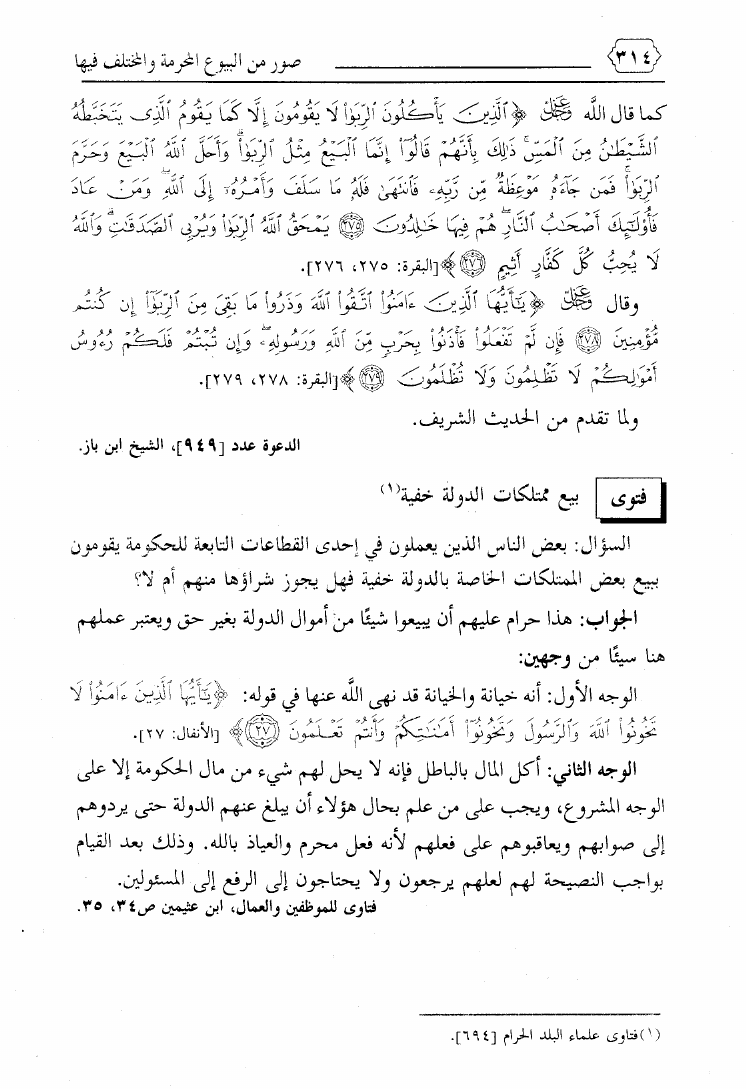 ٣١٤ صور من البيوع المحرمة والمختلف فيها
كما قال الله عز وجل ﴿ٱلَّذِينَ يَأْكُلُونَ ٱلرِّبَوٰا۟ لَا يَقُومُونَ إِلَّا كَمَا يَقُومُ ٱلَّذِى يَتَخَبَّطُهُ
ٱلشَّيْطَٰنُ مِنَ ٱلْمَسِّ ۚ ذَٰلِكَ بِأَنَّهُمْ قَالُوٓا۟ إِنَّمَا ٱلْبَيْعُ مِثْلُ ٱلرِّبَوٰا۟ ۗ وَأَحَلَّ ٱللَّهُ ٱلْبَيْعَ وَحَرَّمَ
ٱلرِّبَوٰا۟ ۚ فَمَن جَآءَهُۥ مَوْعِظَةٌ مِّن رَّبِّهِۦ فَٱنتَهَىٰ فَلَهُۥ مَا سَلَفَ وَأَمْرُهُۥٓ إِلَى ٱللَّهِ ۖ وَمَنْ عَادَ
فَأُو۟لَٰٓئِكَ أَصْحَٰبُ ٱلنَّارِ ۖ هُمْ فِيهَا خَٰلِدُونَ ٢٧٥ يَمْحَقُ ٱللَّهُ ٱلرِّبَوٰا۟ وَيُرْبِى ٱلصَّدَقَٰتِ ۗ وَٱللَّهُ
لَا يُحِبُّ كُلَّ كَفَّارٍ أَثِيمٍ ٢٧٦﴾ [البقرة: ٢٧٥، ٢٧٦].
وقال عز وجل ﴿يَٰٓأَيُّهَا ٱلَّذِينَ ءَامَنُوا۟ ٱتَّقُوا۟ ٱللَّهَ وَذَرُوا۟ مَا بَقِىَ مِنَ ٱلرِّبَوٰٓا۟ إِن كُنتُم
مُّؤْمِنِينَ ٢٧٨ فَإِن لَّمْ تَفْعَلُوا۟ فَأْذَنُوا۟ بِحَرْبٍ مِّنَ ٱللَّهِ وَرَسُولِهِۦ ۖ وَإِن تُبْتُمْ فَلَكُمْ رُءُوسُ
أَمْوَٰلِكُمْ لَا تَظْلِمُونَ وَلَا تُظْلَمُونَ ٢٧٩﴾ [البقرة: ٢٧٨، ٢٧٩].
ولما تقدم من الحديث الشريف.
الدعوة عدد [٩٤٩]، الشيخ ابن باز.
فتوى بيع ممتلكات الدولة خفية(١)
السؤال: بعض الناس الذين يعملون في إحدى القطاعات التابعة للحكومة يقومون
ببيع بعض الممتلكات الخاصة بالدولة خفية فهل يجوز شراؤها منهم أم لا؟
الجواب: هذا حرام عليهم أن يبيعوا شيئًا من أموال الدولة بغير حق ويعتبر عملهم
هنا سيئًا من وجهين:
الوجه الأول: أنه خيانة والخيانة قد نهى الله عنها في قوله: ﴿يَٰٓأَيُّهَا ٱلَّذِينَ ءَامَنُوا۟ لَا
تَخُونُوا۟ ٱللَّهَ وَٱلرَّسُولَ وَتَخُونُوٓا۟ أَمَٰنَٰتِكُمْ وَأَنتُمْ تَعْلَمُونَ ٢٧﴾ [الأنفال: ٢٧].
الوجه الثاني: أكل المال بالباطل فإنه لا يحل لهم شيء من مال الحكومة إلا على
الوجه المشروع، ويجب على من علم بحال هؤلاء أن يبلغ عنهم الدولة حتى يردوهم
إلى صوابهم ويعاقبوهم على فعلهم لأنه فعل محرم والعياذ بالله. وذلك بعد القيام
بواجب النصيحة لهم لعلهم يرجعون ولا يحتاجون إلى الرفع إلى المسئولين.
فتاوى للموظفين والعمال، ابن عثيمين ص٣٤، ٣٥.
(١) فتاوى علماء البلد الحرام [٦٩٤].